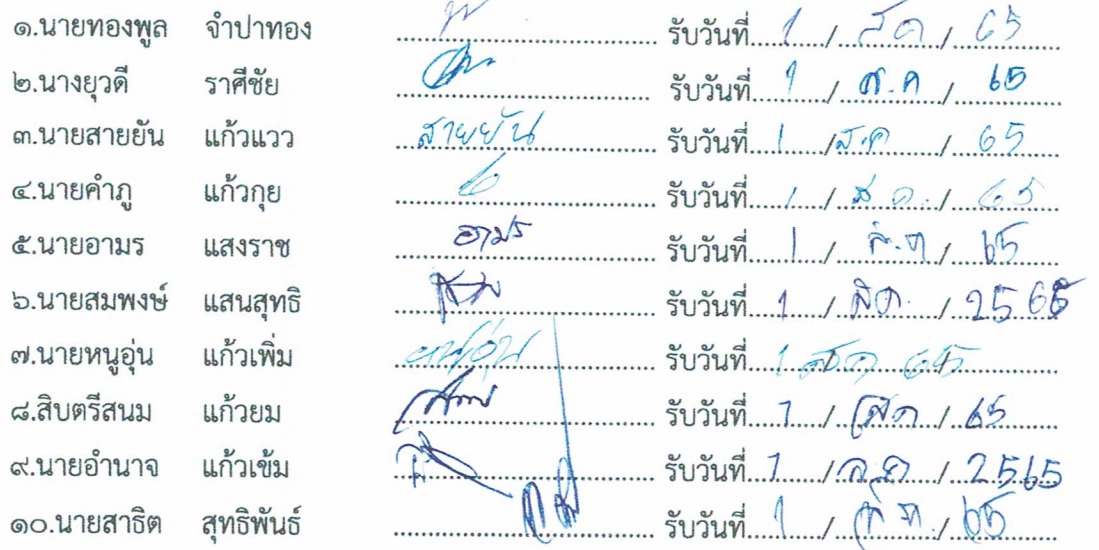 ๑.นายทองพูล จำปาทอง ........ รับวันที่ 1 / สค / 65
๒.นางยุวดี ราศีชัย ........ รับวันที่ 1 / ส.ค / 65
๓.นายสายยัน แก้วแวว สายยัน รับวันที่ 1 / ส.ค / 65
๔.นายคำภู แก้วกุย ........ รับวันที่ 1 / ส ค. / 65
๕.นายอามร แสงราช อามร รับวันที่ 1 / ส.ค / 65
๖.นายสมพงษ์ แสนสุทธิ ........ รับวันที่ 1 / สค. / 2565
๗.นายหนูอุ่น แก้วเพิ่ม หนูอุ่น รับวันที่ 1 สค 65
๘.สิบตรีสนม แก้วยม ........ รับวันที่ 1 / สค / 65
๙.นายอำนาจ แก้วเข้ม ........ รับวันที่ 1 / ส.ค / 2565
๑๐.นายสาธิต สุทธิพันธ์ ........ รับวันที่ 1 / ส.ค. / 65